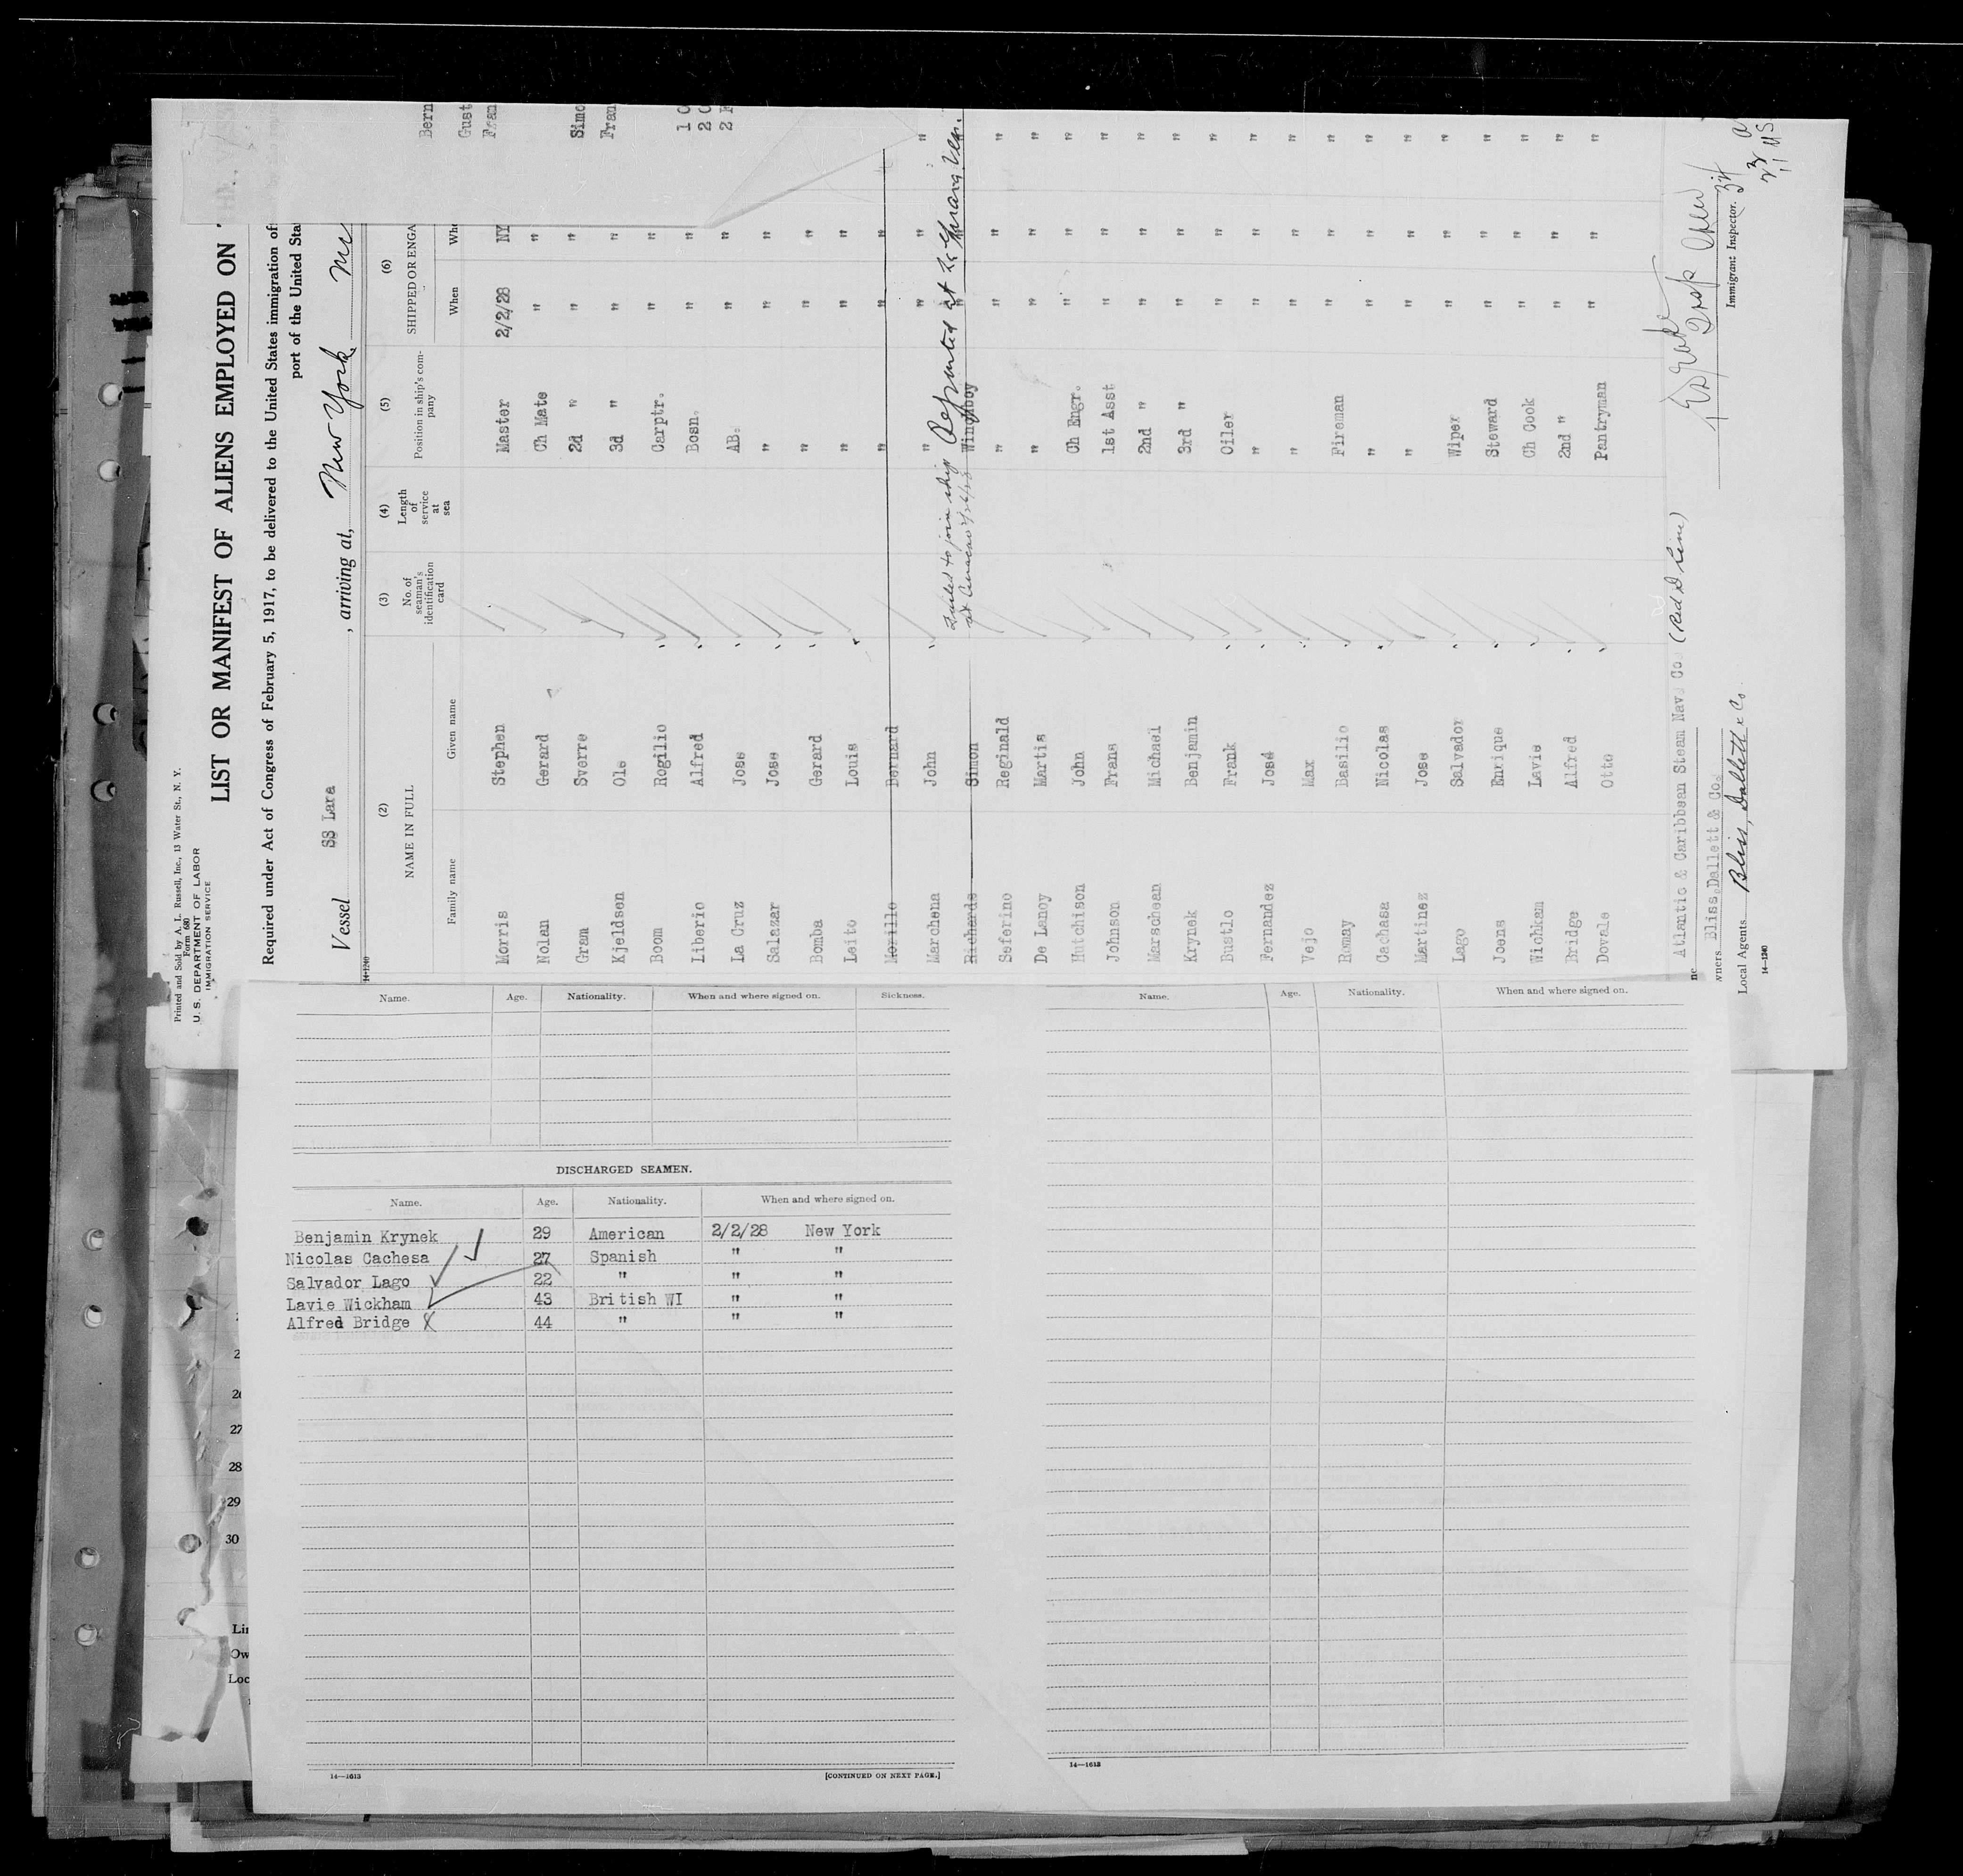 Printed and Sold by A. L. Russell, Inc., 13 Water St., N. Y.
Form 680
U. S. DEPARTMENT OF LABOR
IMMIGRATION SERVICE
LIST OR MANIFEST OF ALIENS EMPLOYED ON
Required under Act of Congress of February 5, 1917, to be delivered to the United States immigration of
port of the United Sta
Vessel SS Lara, arriving at, New York
14-1240
(2) (3) (4) (5) (6)
NAME IN FULL No. of seaman's identification card Length of service at sea Position in ship's company SHIPPED OR ENGA
Family name Given name When Whe
Morris Stephen Master 2/2/28 NY
Nolan Gerard Ch Mate " "
Gram Sverre 2d " " "
Kjeldsen Ole 3d " " "
Boom Rogilio Carptr. " "
Liberio Alfred Bosn. " "
La Cruz Jose AB. " "
Salazar Jose " " "
Bomba Gerard " " "
Leito Louis " " "
Morillo Bernard " " "
Marchena John " " " "
Failed to join ship
Richards Simon Winchboy "
Seferino Reginald " " " "
De Lanoy Martis " " " "
Hutchison John Ch Engr. " " "
Johnson Frans 1st Asst " " "
Marschean Michael 2nd " " " "
Krynek Benjamin 3rd " " " "
Bustlo Frank Oiler " " "
Fernandez José " " " "
Vejo Max " " " "
Romay Basilio Fireman " " "
Cachasa Nicolas " " " "
Martinez Jose " " " "
Lago Salvador Wiper " " "
Joens Enrique Steward " " "
Wichkam Lavie Ch Cook " " "
Bridge Alfred 2nd " " " "
Dovale Otto Pantryman " " "
Atlantic & Caribbean Steam Nav. Co. (Red D Line)
wners Bliss, Dallett & Co.
Local Agents Bliss, Dallett & Co.
Immigrant Inspector.
14-1240
Bern
Gust
Fran
Simo
Fran
1 C
2 C
2 F
Name. Age. Nationality. When and where signed on. Sickness.
DISCHARGED SEAMEN.
Name. Age. Nationality. When and where signed on.
Benjamin Krynek 29 American 2/2/28 New York
Nicolas Cachesa 27 Spanish " "
Salvador Lago 22 " " "
Lavie Wickham 43 British WI " "
Alfred Bridge 44 " " "
14—1613 [CONTINUED ON NEXT PAGE.]
Name. Age. Nationality. When and where signed on.
14—1613
27
28
29
30
Lin
Ow
Loc